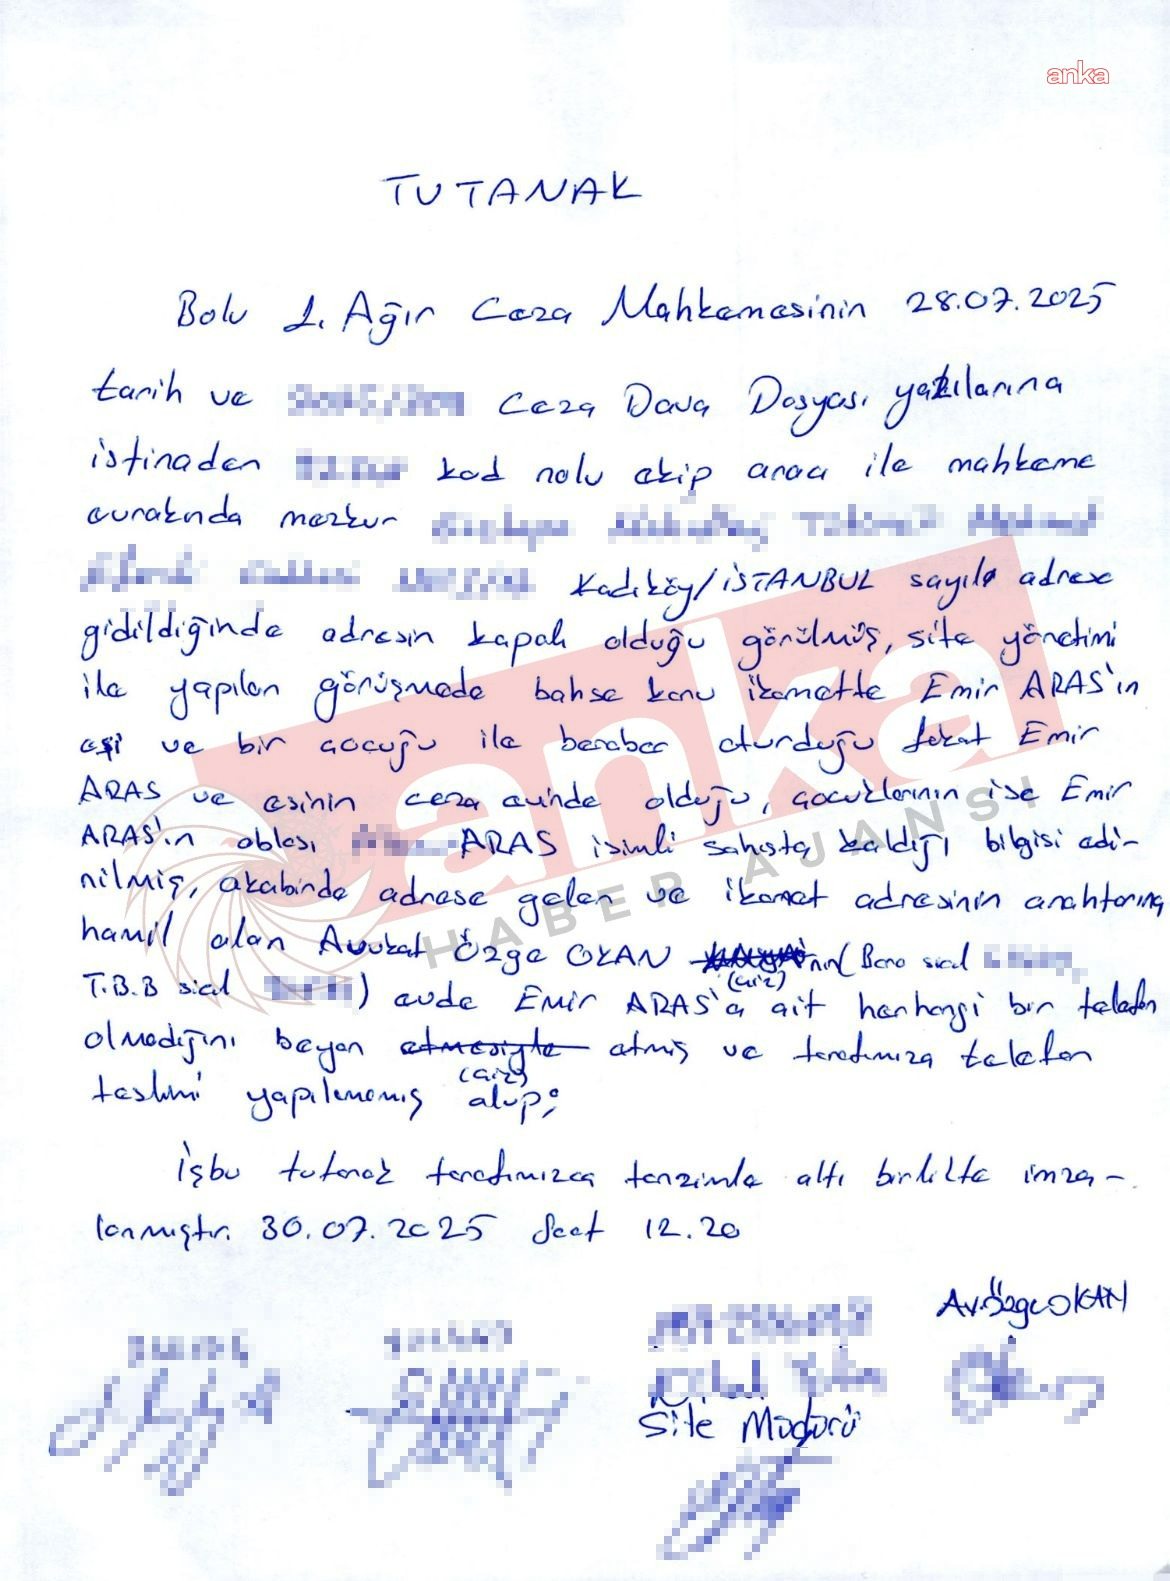 anka
TUTANAK
Bolu 1. Ağır Ceza Mahkemesinin 28.07.2025
tarih ve Ceza Dava Dosyası yazılarına
istinaden kod nolu ekip aracı ile mahkeme
evrakında mezkur
Kadıköy/İSTANBUL sayılı adrese
gidildiğinde adresin kapalı olduğu görülmüş, site yönetimi
ile yapılan görüşmede bahse konu ikamette Emir ARAS'ın
eşi ve bir çocuğu ile beraber oturduğu fakat Emir
ARAS ve eşinin ceza evinde olduğu, çocuklarının ise Emir
ARAS'ın ablası ARAS isimli şahısta kaldığı bilgisi edi-
nilmiş, akabinde adrese gelen ve ikamet adresinin anahtarına
hamil olan Avukat Özge OKAN nın (Baro sicil
(çiz)
T.B.B sicil ) evde Emir ARAS'a ait herhangi bir telefon
olmadığını beyan etmesiyle etmiş ve tarafımıza telefon
(çiz)
teslimi yapılmamış olup;
İşbu tutanak tarafımızca tanzimle altı birlikte imza-
lanmıştır. 30.07.2025 Saat 12.20
Av. Özge OKAN
Site Müdürü
anka
HABER AJANSI